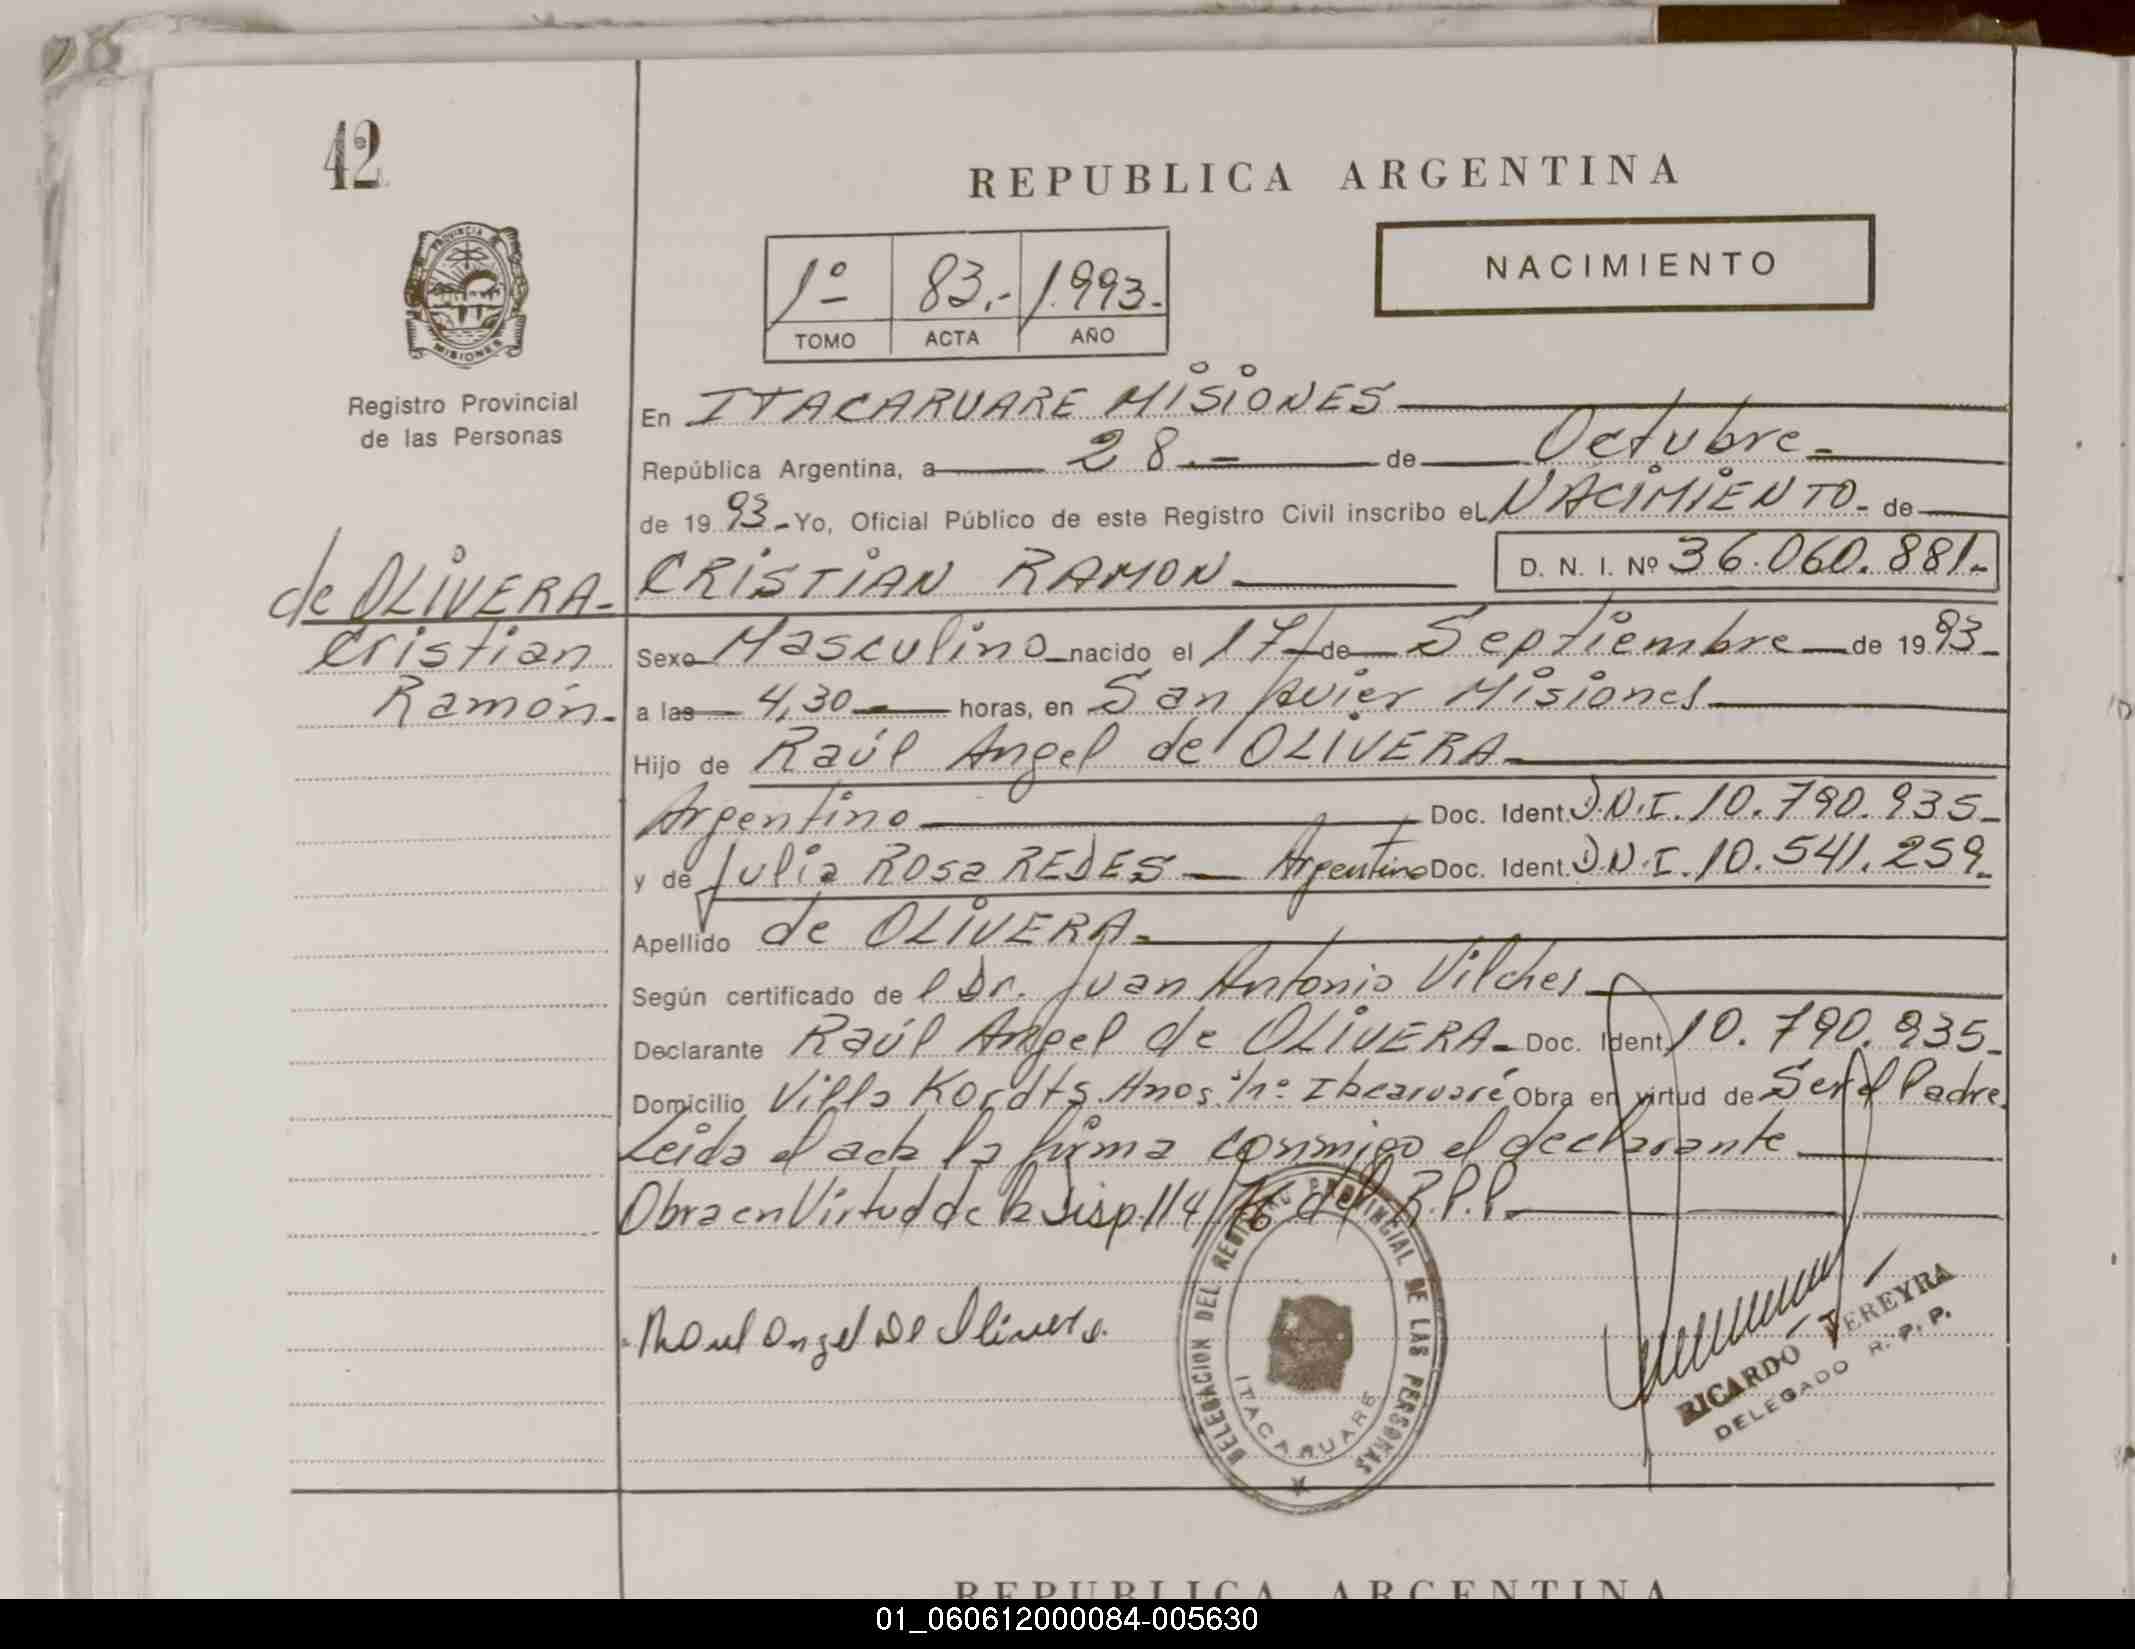 42
REPUBLICA ARGENTINA
PROVINCIA DE
MISIONES
Registro Provincial
de las Personas
NACIMIENTO
1º 83.- 1.993.-
TOMO ACTA AÑO
En ITACARUARE MISIONES
República Argentina, a 28.- de Octubre.-
de 19 93.- Yo, Oficial Público de este Registro Civil inscribo eL NACIMIENTO.- de
CRISTIAN RAMON D. N. I. Nº 36.060.881.-
de OLIVERA.-
Cristian
Ramón.-
Sexo Masculino nacido el 17 de Septiembre de 19 93.-
a las 4,30 horas, en San Javier Misiones
Hijo de Raúl Angel de OLIVERA.-
Argentino Doc. Ident. D.N.I. 10.790.935.-
y de Julia ROSA REDES Argentina Doc. Ident. D.N.I. 10.541.259.-
Apellido de OLIVERA.-
Según certificado de l Dr. Juan Antonio Vilches
Declarante Raúl Angel de OLIVERA.- Doc. Ident. 10.790.935.-
Domicilio Villa Kordts Obra en virtud de Ser el Padre
Leida el acta la firma conmigo el declarante
Obra en Virtud de la Disp. 114/76 del R.P.P.
Raul Angel De Olivera.
DELEGACION DEL REGISTRO PROVINCIAL DE LAS PERSONAS
ITACARUARE
RICARDO PEREYRA
DELEGADO R. P. P.
REPUBLICA ARGENTINA
01_060612000084-005630